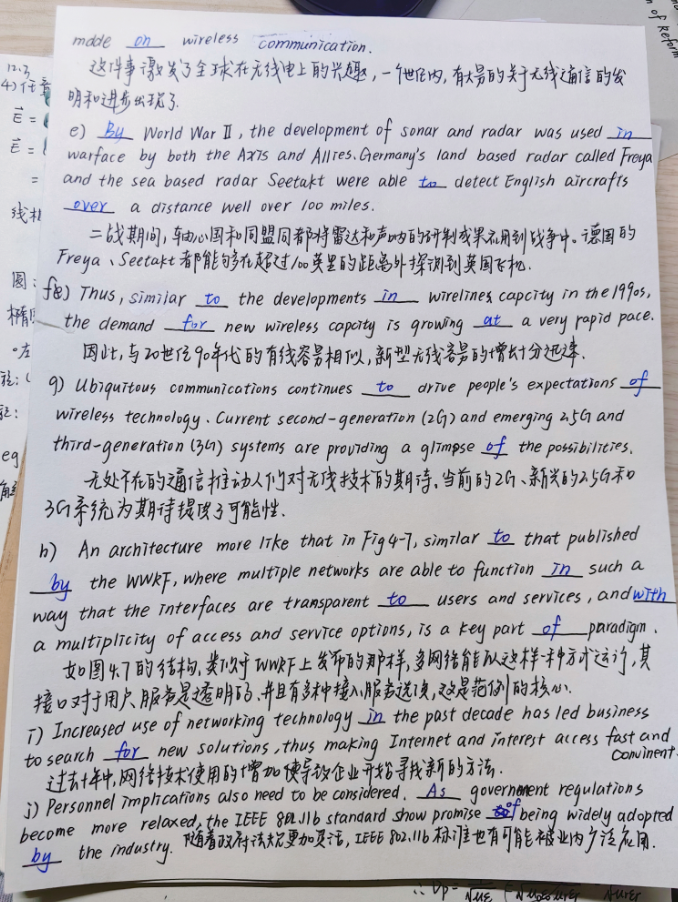 mdde on wireless communication.
这件事激发了全球在无线电上的兴趣，一个世纪内，有大量的关于无线通信的发
明和进步出现了.
e) By World War II, the development of sonar and radar was used in
warface by both the Axis and Allres. Germany's land based radar called Freya
and the sea based radar Seetakt were able to detect English aircrafts
over a distance well over 100 miles.
二战期间，轴心国和同盟国都将雷达和声呐的研制成果应用到战争中。德国的
Freya、Seetakt都能够在超过100英里的距离外探测到英国飞机.
f) Thus, similar to the developments in wirelines capcity in the 1990s,
the demand for new wireless capcity is growing at a very rapid pace.
因此，与20世纪90年代的有线容易相似，新型无线容易的增长十分迅速.
g) Ubiquitous communications continues to drive people's expectations of
wireless technology. Current second-generation (2G) and emerging 2.5G and
third-generation (3G) systems are providing a glimpse of the possibilities.
无处不在的通信推动人们对无线技术的期待，当前的2G、新兴的2.5G和
3G系统为期待提供了可能性.
h) An architecture more like that in Fig 4-7, similar to that published
by the WWRF, where multiple networks are able to function in such a
way that the interfaces are transparent to users and services, and with
a multiplicity of access and service options, is a key part of paradigm.
如图4.7的结构，类似于WWRF上发布的那样，多网络能以这样一种方式运行，其
接口对于用户、服务是透明的、并且有多种接入服务选项，这是范例的核心.
i) Increased use of networking technology in the past decade has led business
to search for new solutions, thus making Internet and interest access fast and
convinent.
过去十年中，网络技术使用的增加使导致企业开始寻找新的方法.
j) Personnel implications also need to be considered. As government regulations
become more relaxed, the IEEE 802.11b standard show promise of being widely adopted
by the industry. 随着政府法规更加灵活，IEEE 802.11b标准也有可能被业内广泛应用.
12.3
4)
E =
E =
=
线
圆:
椭圆
eg
of Reform